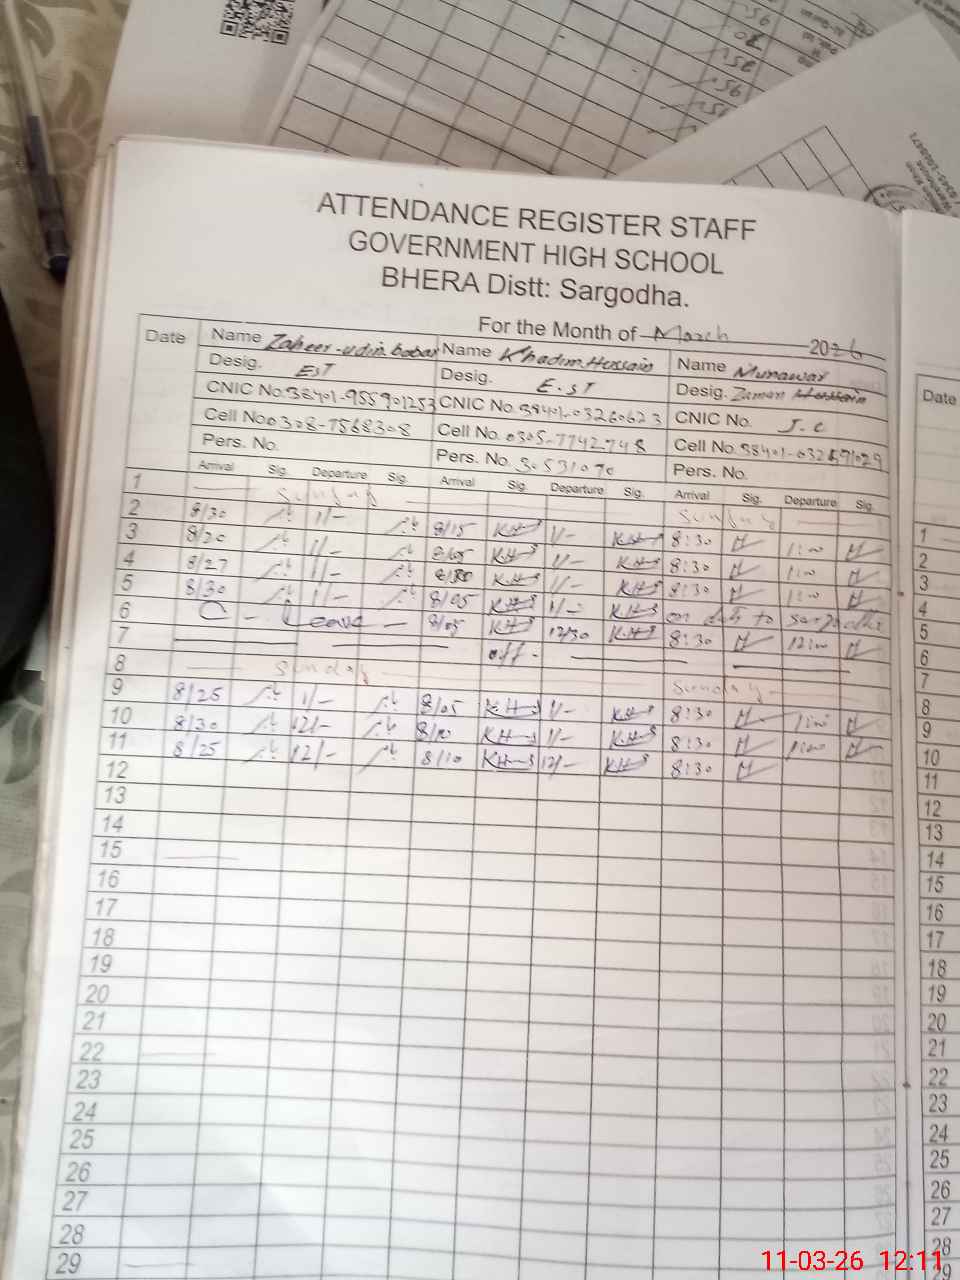 ATTENDANCE REGISTER STAFF
GOVERNMENT HIGH SCHOOL
BHERA Distt: Sargodha.
For the Month of March 2026
Date Name Zaheer-udin.babar Name Khadim Hussain Name Munawar
Desig. EST Desig. E.ST Desig. Zaman Hussain
CNIC No. 38401-955901253 CNIC No. 38401-03260623 CNIC No. J.C
Cell No 0308-7568308 Cell No. 0305-7742748 Cell No.
Pers. No. Pers. No. 30531070 Pers. No.
Arrival Sig. Departure Sig. Arrival Sig. Departure Sig. Arrival Sig. Departure Sig.
1 Sunday Sunday
2 8/30 1/- 8/15 KH 1/- KH 8:30 1:00
3 8/20 1/- KH 1/- KH 8:30 1:00
4 8/27 1/- KH 1/- KH 8:30 1:00
5 8/30 1/- 8/05 KH 1/- KH on to sargodha
6 C - Leave - 8/05 KH 12/30 KH 8:30 12:00
7 off.
8 Sunday Sunday
9 8/25 1/- 8/05 KH 1/- KH 8:30 1:00
10 8/30 12/- KH 1/- KH 8:30 1:00
11 8/25 12/- 8/10 KH 12/- KH 8:30
12
13
14
15
16
17
18
19
20
21
22
23
24
25
26
27
28
29
Date
1
2
3
4
5
6
7
8
9
10
11
12
13
14
15
16
17
18
19
20
21
22
23
24
25
26
27
28
29
11-03-26 12:11